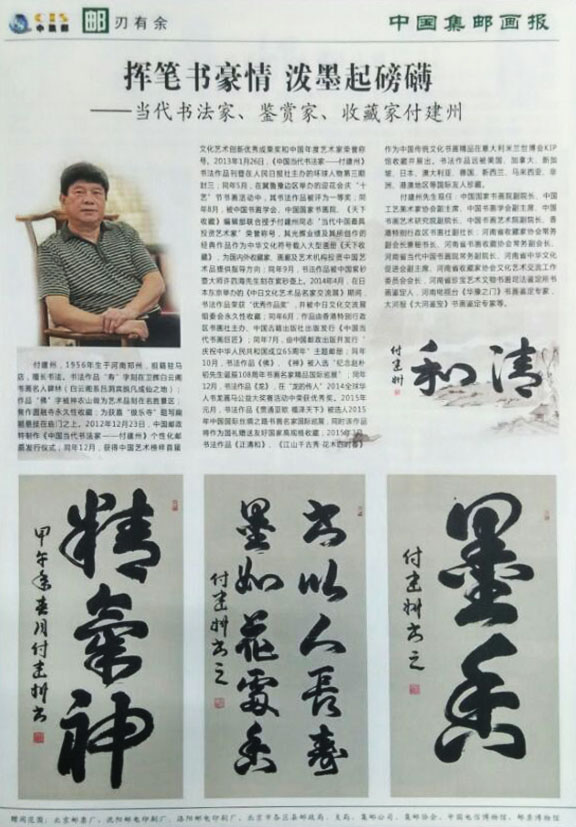 中集邮
邮 刃有余
中国集邮画报
挥笔书豪情 泼墨起磅礴
——当代书法家、鉴赏家、收藏家付建州
付建州，1956年生于河南郑州，祖籍驻马
店，擅长书法。书法作品“寿”字刻在卫辉白云阁
作品“佛”字被神农山做为艺术品刻在名胜景区；
焦作圆融寺永久性收藏；为获嘉“极乐寺”题写扁
额悬挂在庙门之上。2012年12月23日，中国邮政
特制作《中国当代书法家——付建州》个性化邮
票发行仪式；同年12月，获得中国艺术榜样首届
文化艺术创新优秀成果奖和中国年度艺术家荣誉称
号。2013年1月26日，《中国当代书法家——付建州》
书法作品刊登在人民日报社主办的环球人物第三期
封三；同年5月，在冀鲁豫边区举办的迎花会庆“十
艺”节书画活动中，其书法作品被评为一等奖；同
年8月，被中国书画学会、中国国家书画院、《天下
收藏》编辑部联合授予付建州同志“当代中国最具
投资艺术家”荣誉称号，其光辉业绩及其所创作的
经典作品作为中华文化符号载入大型画册《天下收
藏》，为国内外收藏家、画廊及艺术机构投资中国艺
术品提供指导方向；同年9月，书法作品被中国紫砂
壶大师许四海先生刻在紫砂壶上。2014年4月，在日
本东京举办的《中日文化艺术品名家交流展》期间，
书法作品荣获“优秀作品奖”，并被中日文化交流展
组委会永久性收藏；同年6月，作品由香港特别行政
区书画社主办、中国古籍出版社出版发行《中国当
代书画巨匠》；同年7月，由中国邮政出版并发行“
庆祝中华人民共和国成立65周年”主题邮册；同年
10月，书法作品《佛》、《神》被入选“纪念赵朴
初先生诞辰108周年书画名家精品国际巡展”；同年
12月，书法作品《龙》，在“龙的传人”2014全球华
人书发画马公益大奖赛活动中荣获优秀奖。2015年
元月，书法作品《贯通亚欧 福泽天下》被选入2015
年中国国际丝绸之路书画名家国际巡展，同时该作品
将作为国礼赠送友好国家高规格收藏；2015年3月
书法作品《泛清和》、《江山千古秀·花木四时春》
作为中国传统文化书画精品在意大利米兰世博会KIP
馆收藏并展出。书法作品远被美国、加拿大、新加
坡、日本、澳大利亚、德国、新西兰、马来西亚、非
洲、港澳地区等国际友人珍藏。
付建州先生现任：中国国家书画院副院长、中国
工艺美术家协会副主席、中国书画学会副主席、中国
书画美术研究院副院长、中国书画艺术院副院长、香
港特别行政区书画社副社长；河南省收藏家协会常务
副会长兼秘书长、河南省书画收藏协会常务副会长、
河南省当代中国画院常务副院长、河南省中华文化
促进会副主席、河南省收藏家协会文化艺术交流工作
委员会会长、河南省珍宝艺术文物书画司法鉴定所书
画鉴定人，河南电视台《华豫之门》书画鉴定专家，
大河报《大河鉴宝》书画鉴定专家等。
清和
付建州
精气神
甲午年春月付建州书
书以人长寿
墨如花处香
付建州书之
墨香
付建州书之
赠阅范围：北京邮票厂、沈阳邮电印刷厂、洛阳邮电印刷厂、北京市各区县邮政局、支局、集邮公司、集邮协会、中国电信博物馆、邮票博物馆